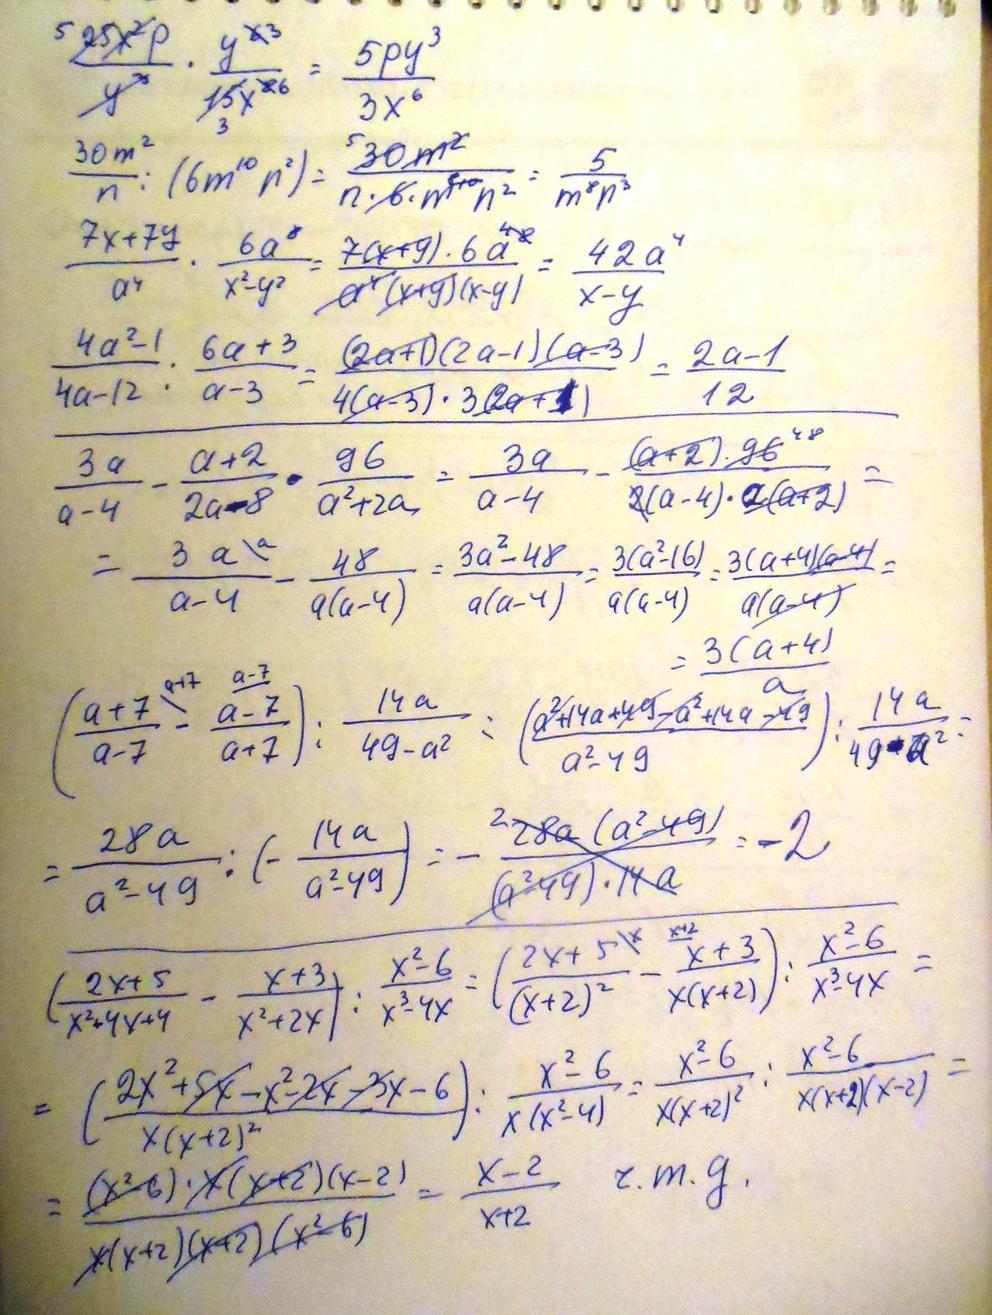 ⁵ 25x²p/y³ · y^(x 3)/(15x^(8 6) 3) = 5py³/3x⁶
30m²/n : (6m¹⁰n²) = ⁵30m²/(n·6·m^(8 10)n²) = 5/(m⁸n³)
(7x+7y)/a⁴ · 6a⁸/(x²-y²) = (7(x+y)·6a^(4 8))/(a⁴(x+y)(x-y)) = 42a⁴/(x-y)
(4a²-1)/(4a-12) : (6a+3)/(a-3) = ((2a+1)(2a-1)(a-3))/(4(a-3)·3(2a+1)) = (2a-1)/12
3a/(a-4) - (a+2)/(2a-8) · 96/(a²+2a) = 3a/(a-4) - ((a+2)·96 ⁴⁸)/(2(a-4)·a(a+2)) =
= 3a\ᵃ/(a-4) - 48/(a(a-4)) = (3a²-48)/(a(a-4)) = 3(a²-16)/(a(a-4)) = 3(a+4)(a-4)/(a(a-4)) =
= 3(a+4)/a
((a+7)/(a-7) \ᵃ⁺⁷ - (a-7)/(a+7) ᵃ⁻⁷) : 14a/(49-a²) = ((a²+14a+49-a²+14a-49)/(a²-49)) : 14a/(49-a²) =
= 28a/(a²-49) : (- 14a/(a²-49)) = - ²28a(a²-49)/((a²-49)·14a) = -2
((2x+5)/(x²+4x+4) - (x+3)/(x²+2x)) : (x²-6)/(x³-4x) = ((2x+5\ˣ)/(x+2)² - ˣ⁺² (x+3)/(x(x+2))) : (x²-6)/(x³-4x) =
= ((2x²+5x-x²-2x-3x-6)/(x(x+2)²)) : (x²-6)/(x(x²-4)) = (x²-6)/(x(x+2)²) : (x²-6)/(x(x+2)(x-2)) =
= ((x²-6)·x(x+2)(x-2))/(x(x+2)(x+2)(x²-6)) = (x-2)/(x+2) ч.т.д.